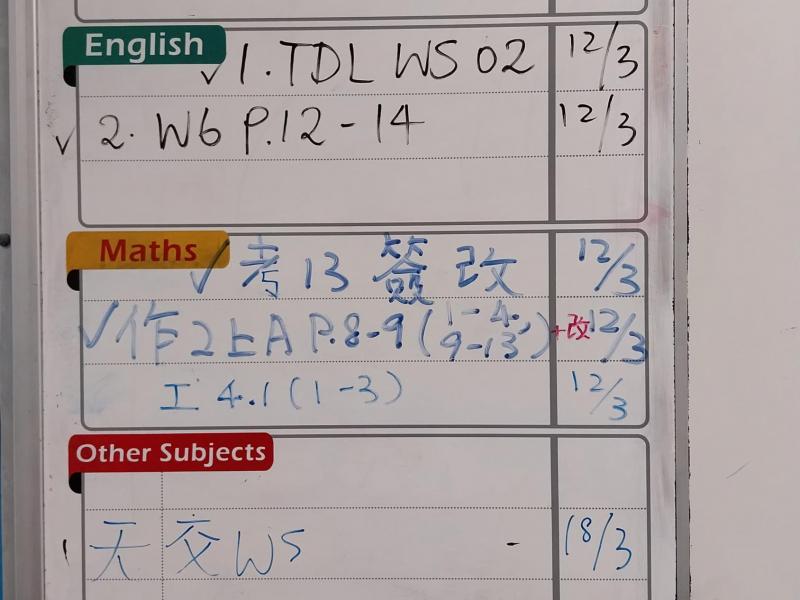 English
✓1. TDL WS 02 12/3
✓ 2. WB P.12-14 12/3
Maths
✓考13 簽改 12/3
✓作2上A P.8-9 (1-4, 9-13) +改 12/3
工 4.1 (1-3) 12/3
Other Subjects
天 交 WS - 18/3